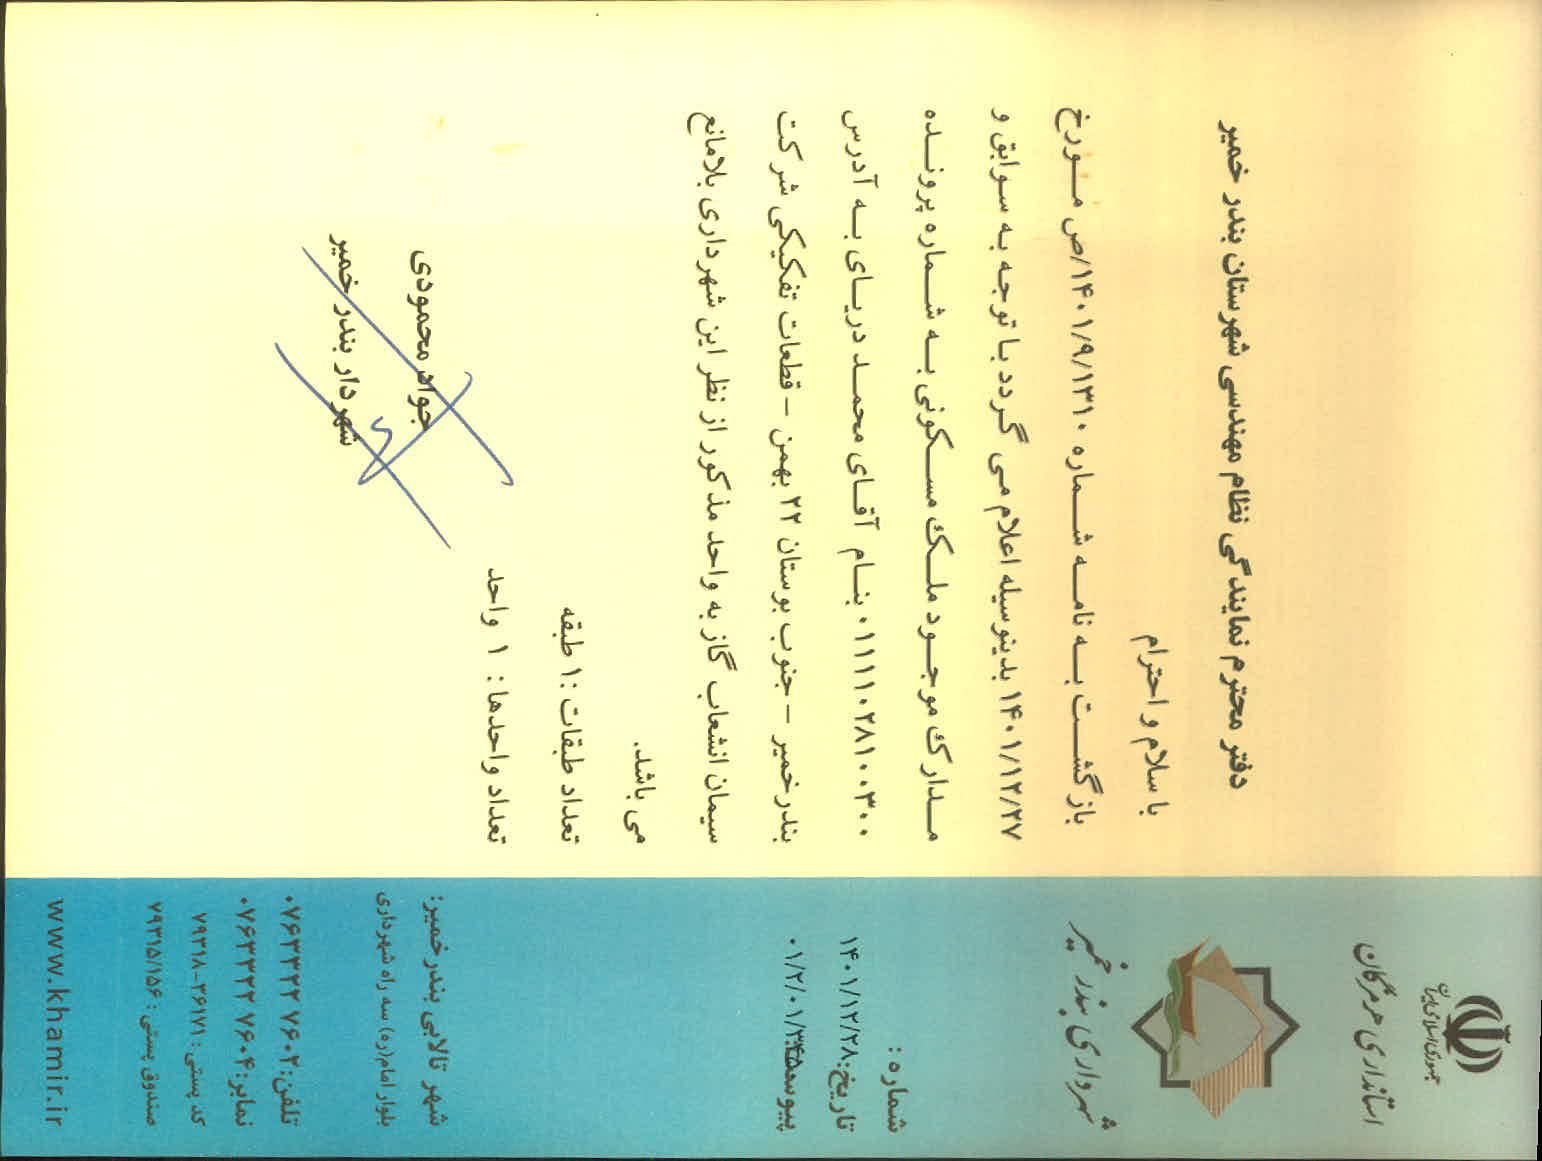 جمهوری اسلامی ایران
استانداری هرمزگان
شهرداری بندر خمیر
شماره :
تاریخ: ۱۴۰۱/۱۲/۲۸
پیوست
شهر تالابی بندر خمیر:
بلوار امام(ره) سه راه شهرداری
تلفن: ۰۷۶۳۳۲۲۷۶۰۲
نمابر: ۰۷۶۳۳۲۲۷۶۰۴
کد پستی: ۲۶۱۷۱-۷۹۳۱۸
صندوق پستی: ۷۹۳۱۵/۱۵۶
www.khamir.ir
دفتر محترم نمایندگی نظام مهندسی شهرستان بندر خمیر
با سلام و احترام
بازگشت به نامه شماره ۱۴۰۱/۹/۱۳۱۰/ص مورخ
۱۴۰۱/۱۲/۲۷ بدینوسیله اعلام می گردد با توجه به سوابق و
مدارک موجود ملک مسکونی به شماره پرونده
۰۱۱۱۱۰۲۸۱۰۰۳۰۰ بنام آقای محمد دریای به آدرس
بندرخمیر – جنوب بوستان ۲۲ بهمن – قطعات تفکیکی شرکت
سیمان انشعاب گاز به واحد مذکور از نظر این شهرداری بلامانع
می باشد.
تعداد طبقات :۱ طبقه
تعداد واحدها : ۱ واحد
جواد محمودی
شهردار بندر خمیر